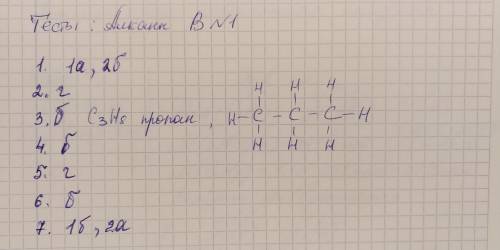 Тесты: Алкани В№1
1. 1а, 2б
2. г
3. б C3H8 пропан,
H H H
H - C - C - C - H
H H H
4. б
5. г
6. б
7. 1б, 2а